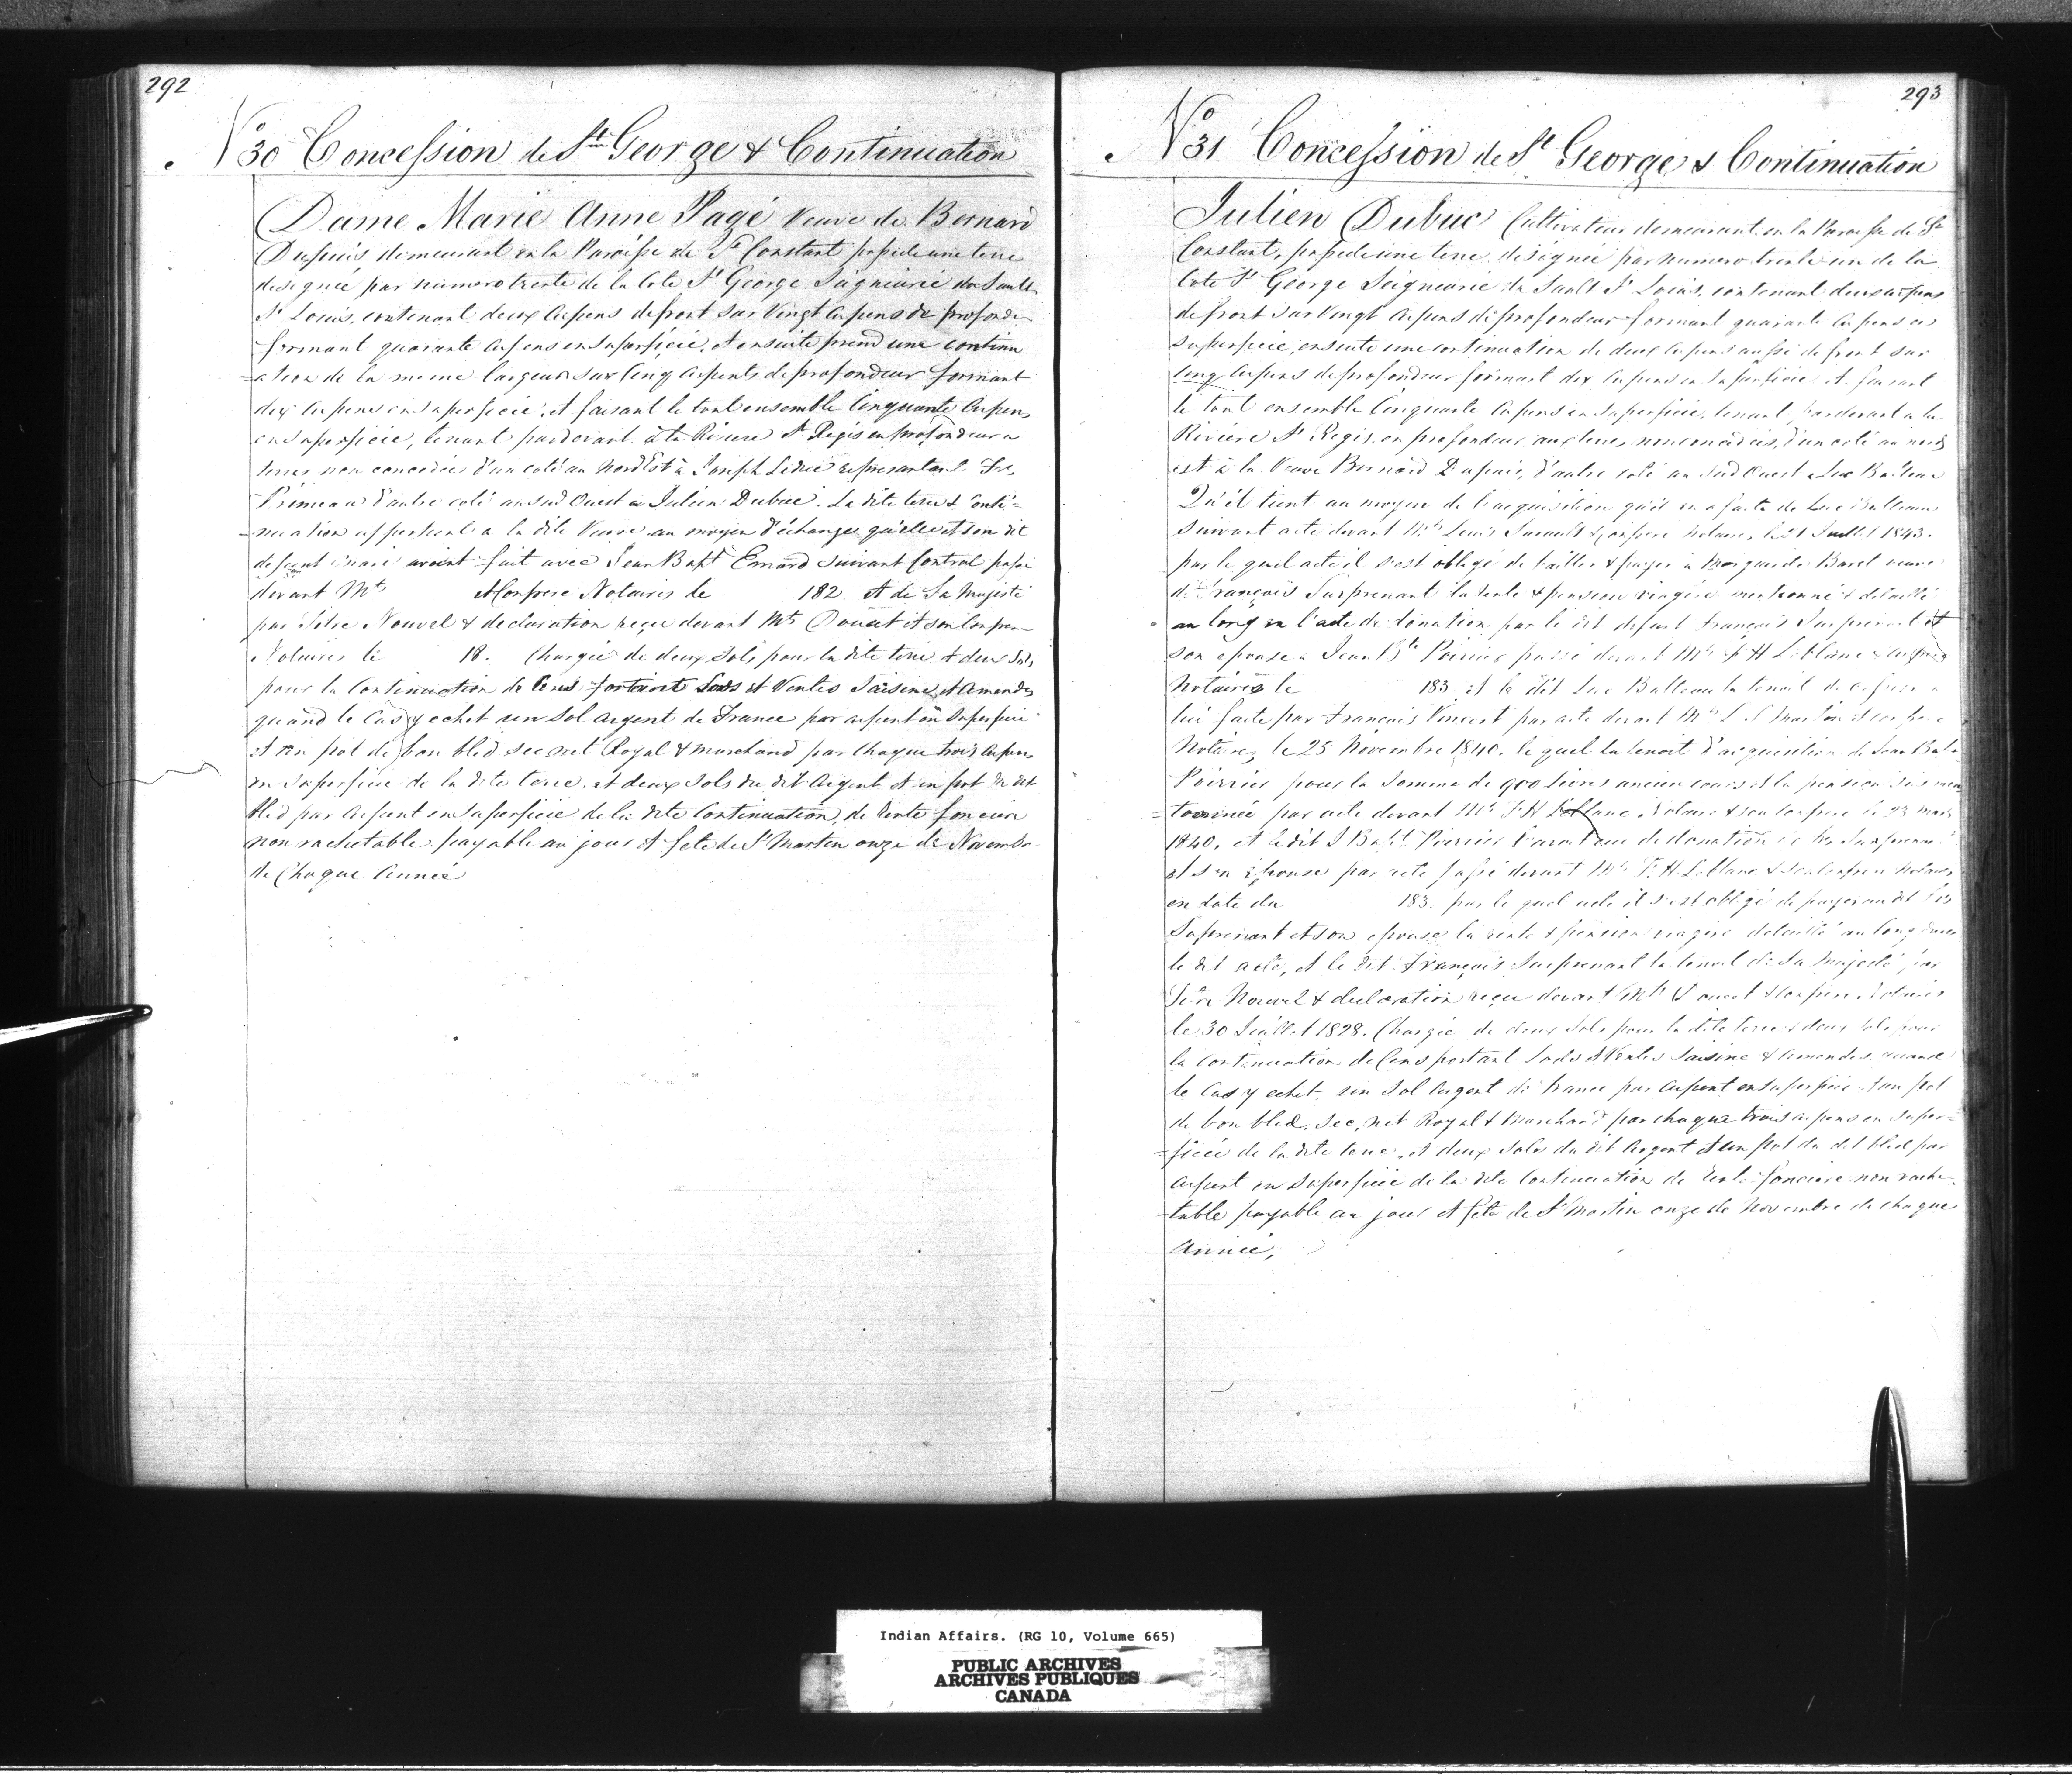 292
No 30 Concession de St George & Continuation
Dame Marie Anne Pagé Veuve de Bernard
Dupuis demeurant en la Paroisse de St Constant possede une terre
designée par numero trente de la Cote St George Seigneurie du Sault
St Louis, contenant deux Arpens de front sur Vingt Arpens de profonde
formant quarante Arpens en Superficie, et ensuite prend une continu
=ation de la meme largeur sur Cinq Arpents de profondeur formant
dix Arpens en Superficie, et faisant le tout ensemble Cinquante Arpens
en Superficie, tenant pardevant à la Riviere St Regis en profondeur a
terres non concedées d'un coté au Nord Est à Joseph Leduc representant
Primeau d'autre coté au Sud Ouest a Julien Dubuc. La dite terre & Conti=
=nuation appartient a la dite Veuve au moyen d'échange qu'elle et son dit
defunt mari avoient fait avec Jean Bapt Emard suivant Contrat passé
devant Mts & Confrere Notaires le 182 et de Sa Majesté
par Titre Nouvel & declaration reçu devant Mts Doucet et son Confrere
Notaires le 18. Chargée de deux Sols pour la dite terre & deux Sols
pour la Continuation de Cens portant Lods et Ventes Saisine et Amendes
quand le Cas y echet un Sol Argent de France par arpent en Superficie
et un pot de bon bled sec net Royal & marchand par chaque trois Arpens
en Superficie de la dite terre, et deux Sols du dit Argent et un pot du dit
bled par Arpent en Superficie de la dite Continuation, de rente fonciere
non rachetable payable au jour et fete de St Martin onze de Novembre
de Chaque Année
293
No 31 Concession de St George & Continuation
Julien Dubuc Cultivateur demeurant en la Paroisse de St
Constant, possede une terre designée par numero trente un de la
Cote St George Seigneurie du Sault St Louis, contenant deux arpens
de front sur Vingt Arpens de profondeur formant quarante Arpens en
superficie, ensuite une continuation de deux Arpens aussi de front sur
Cinq Arpens de profondeur formant dix Arpens en Superficie et faisant
le tout ensemble Cinquante Arpens en Superficie, tenant pardevant a la
Rivière St Regis, en profondeur aux terres non concedées, d'un coté au nord
est à la Veuve Bernard Dupuis, d'autre coté au Sud Ouest a Luc Bulteau
Qu'il tient au moyen de l'acquisition qu'il en a faite de Luc Bulteau
suivant acte devant Mts Louis & Confrere Notaires, le 21 Juillet 1843.
par le quel acte il s'est obligé de bailler & payer à Marguerite Barel veuve
de François Surprenant la rente & pension viagère mentionné & detaillé
au long en l'acte de donation par le dit defunt François Surprenant et
son epouse a Jean Bte Poirier passé devant Mts F H Leblanc & Confrere
Notaires le 183 et le dit Luc Bulteau la tenoit de a
lui faite par François Vincent par acte devant Mts L S Martin et confrere
Notaires, le 25 Novembre 1840. le quel la tenoit d'acquisition de Jean Bapt
Poirier pour la Somme de 900 livres ancien cours et la pension sus men
=tionnée par acte devant Mts F H Leblanc Notaire & son Confrere le 23 mars
1840. et le dit J Bapt Poirier l'avoit eue de donation de Frs Surprenant
et son épouse par acte passé devant Mts F. H. Leblanc & son Confrere Notaires
en date du 183. par le quel acte il s'est obligé de payer au dit Frs
Surprenant et son epouse la rente & pension viagere detaillé au long dans
le dit acte, et le dit François Surprenant la tenoit de Sa Majesté par
Titre Nouvel & declaration reçu devant Mts Doucet & Confrere Notaires
le 30 Juillet 1828. Chargée de deux Sols pour la dite terre & deux Sols pour
la Continuation de Cens portant Lods et Ventes Saisine & Amendes, quand
le Cas y echet, un Sol Argent de france par Arpent en Superficie & un pot
de bon bled, sec, net Royal & Marchand par chaque trois arpens en Super=
=ficie de la dite terre, et deux Sols du dit Argent et un pot du dit bled par
Arpent en Superficie de la dite Continuation de rente fonciere non rache
=table payable au jour et fete de St Martin onze de Novembre de chaque
Année,
Indian Affairs. (RG 10, Volume 665)
PUBLIC ARCHIVES
ARCHIVES PUBLIQUES
CANADA